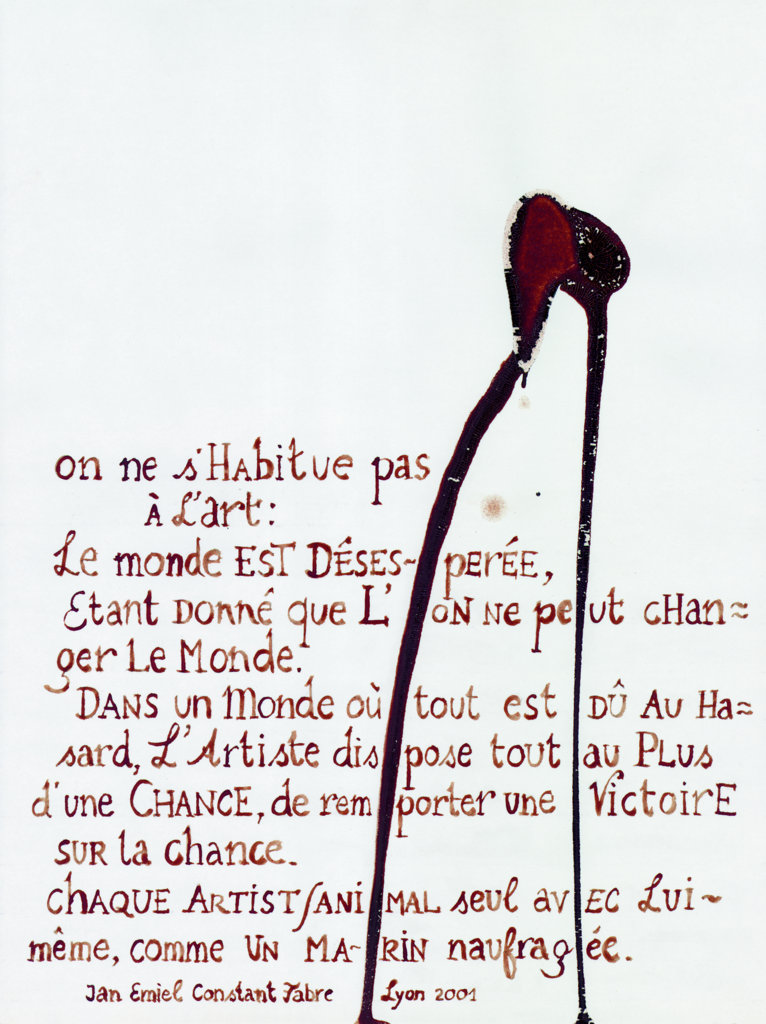 on ne s'HAbitue pas
À L'art:
Le monde EST DÉSES~ perÉE,
Etant DonnÉ que L'ON Ne peut cHan≈
ger Le Monde.
DANS un Monde où tout est DÛ Au Ha≈
sard, L'Artiste dispose tout au PLus
d'une CHANCE, de remporter une VictoirE
SUR la chance.
CHAQUE ARTIST/ANIMAL seul avEC Lui~
même, comme UN MA-RIN naufragée.
Jan Emiel Constant Fabre Lyon 2001